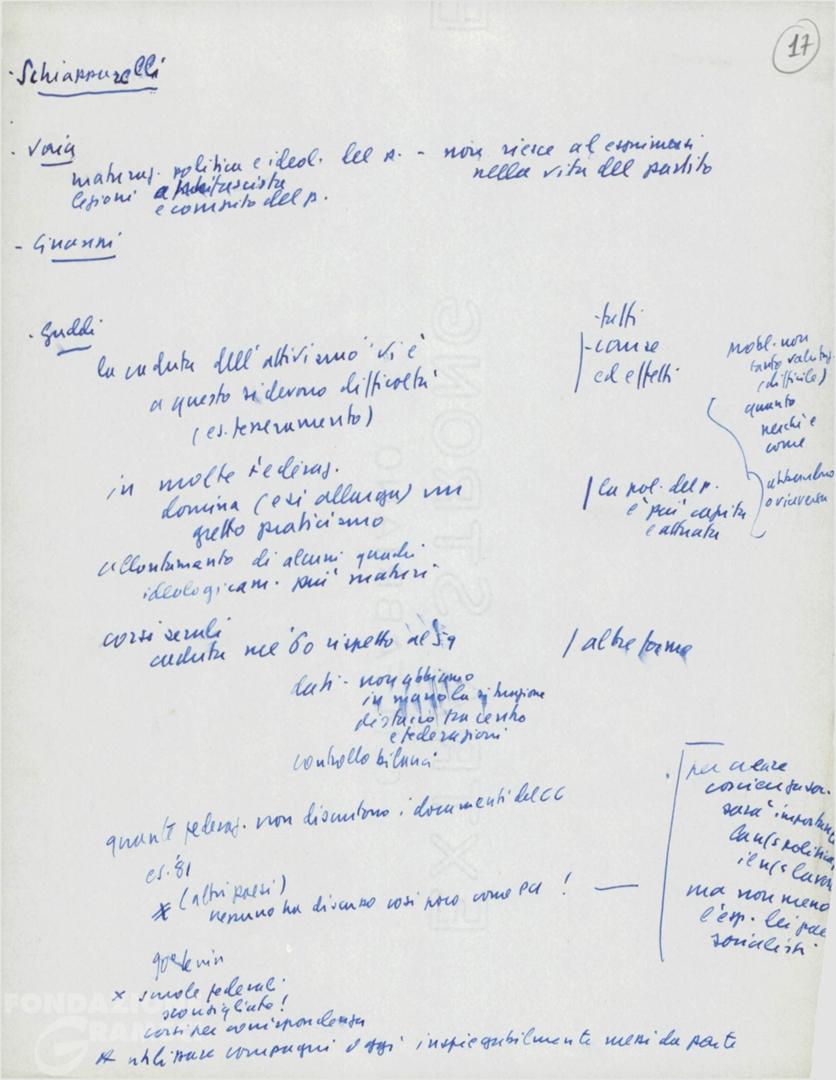 17
· Schiapparelli
· Vaia
maturaz. politica e ideol. del p. - non riesce ad esprimersi
nella vita del partito
lezioni antifascista
e compito del p.
- Guanni
· Guddi
la caduta dell'"attivismo" vi è
a questo si devono difficoltà
(es. tesseramento)
- tutti
- cause
ed effetti
probl. non
tanto valutaz.
(difficile)
quanto
perché e
come
abbandono
o viceversa
in molte Federaz.
domina (e si allarga) un
gretto praticismo
la pol. del p.
è più capita
e attuata
allontamento di alcuni quadri
ideologicam. più maturi
corsi serali
caduta nel '60 rispetto al 59
/ altre forme
dati - non abbiamo
in mano la situazione
distacco tra centro
e federazioni
controllo bilanci
quante federaz. non discutono i documenti del CC
es. '81
(altri paesi)
nessuno ha discusso così poco come PCI ! —
per creare
coscienza soc.
sarà importante
la ns politica,
il ns lavoro
ma non meno
l'esp. dei paesi
socialisti
90° Lenin
x scuole federali
sconsigliate!
corsi per corrispondenza
x utilizzare compagni oggi inspiegabilmente messi da parte
FONDAZIONE
GRAMSCI
EXTRA STRONG